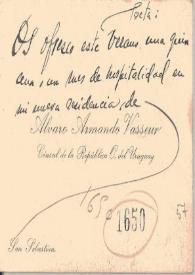 Poeta:
Os ofrezco este verano una quin
cena, un mes de hospitalidad en
mi nueva residencia, de
Alvaro Armando Vasseur
Cónsul de la República O. del Uruguay
1650
1650
57
San Sebastian